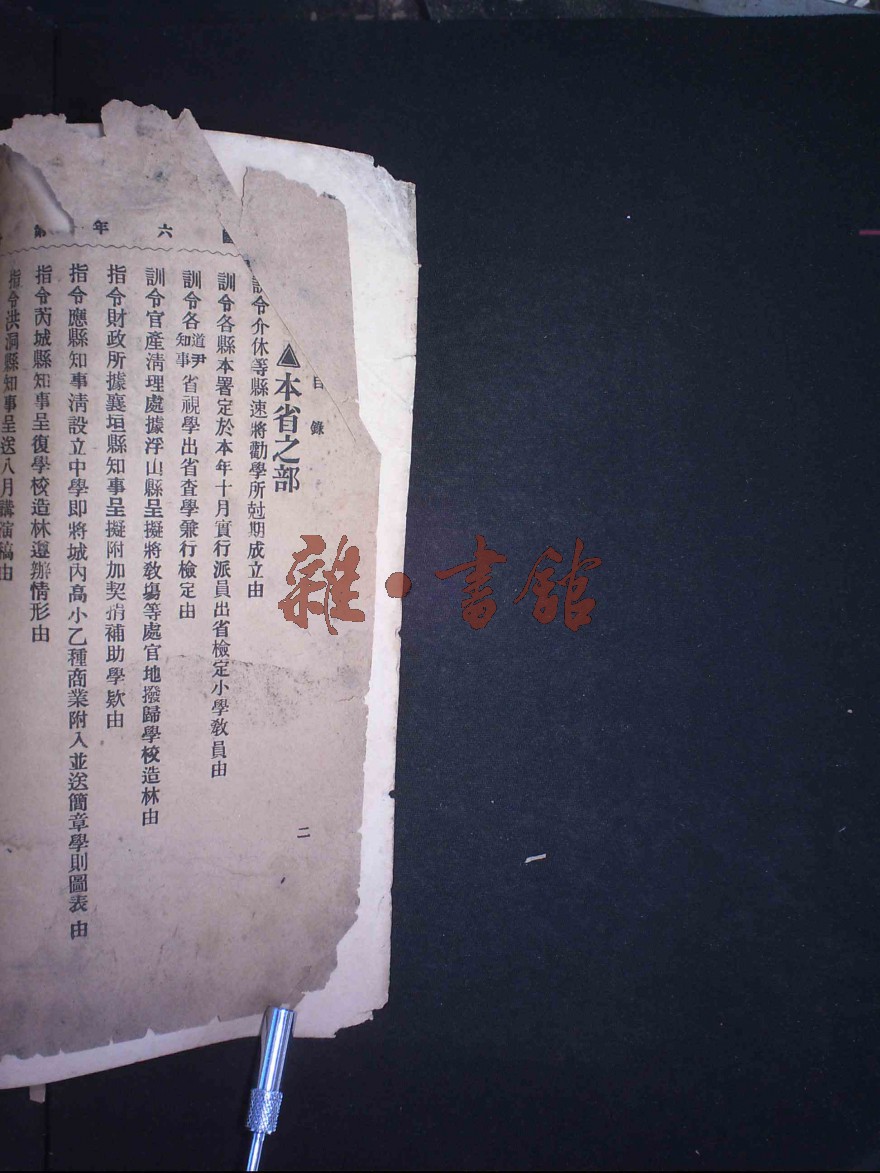 六年
目錄
▲本省之部
訓令介休等縣速將勸學所尅期成立由
訓令各縣本署定於本年十月實行派員出省檢定小學敎員由
訓令各道尹知事省視學出省查學兼行檢定由
訓令官產淸理處據浮山縣呈擬將敎塲等處官地撥歸學校造林由
指令財政所據襄垣縣知事呈擬附加契捐補助學欵由
指令應縣知事淸設立中學即將城內高小乙種商業附入並送簡章學則圖表由
指令芮城縣知事呈復學校造林遵辦情形由
指令洪洞縣知事呈送八月講演稿由
二
雜·書館